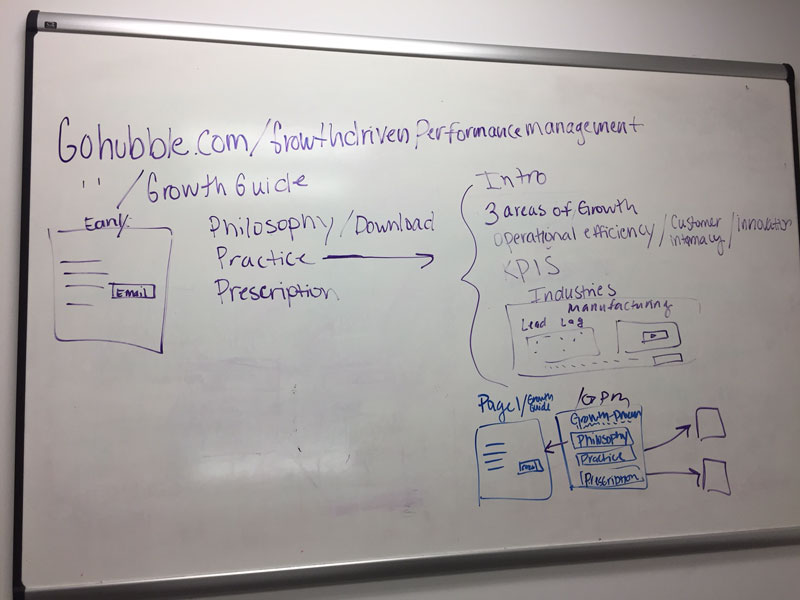 Gohubble.com/GrowthdrivenPerformancemanagement
" /Growth Guide
Early:
Email
Philosophy/Download
Practice
Prescription
Intro
3 areas of Growth
Operational efficiency/Customer intamacy/Innovation
KPIS
Industries
Manufacturing
Lead Lag
Page 1/Growth Guide
Email
/GDPM
Growth-Driven
Philosophy
Practice
Prescription